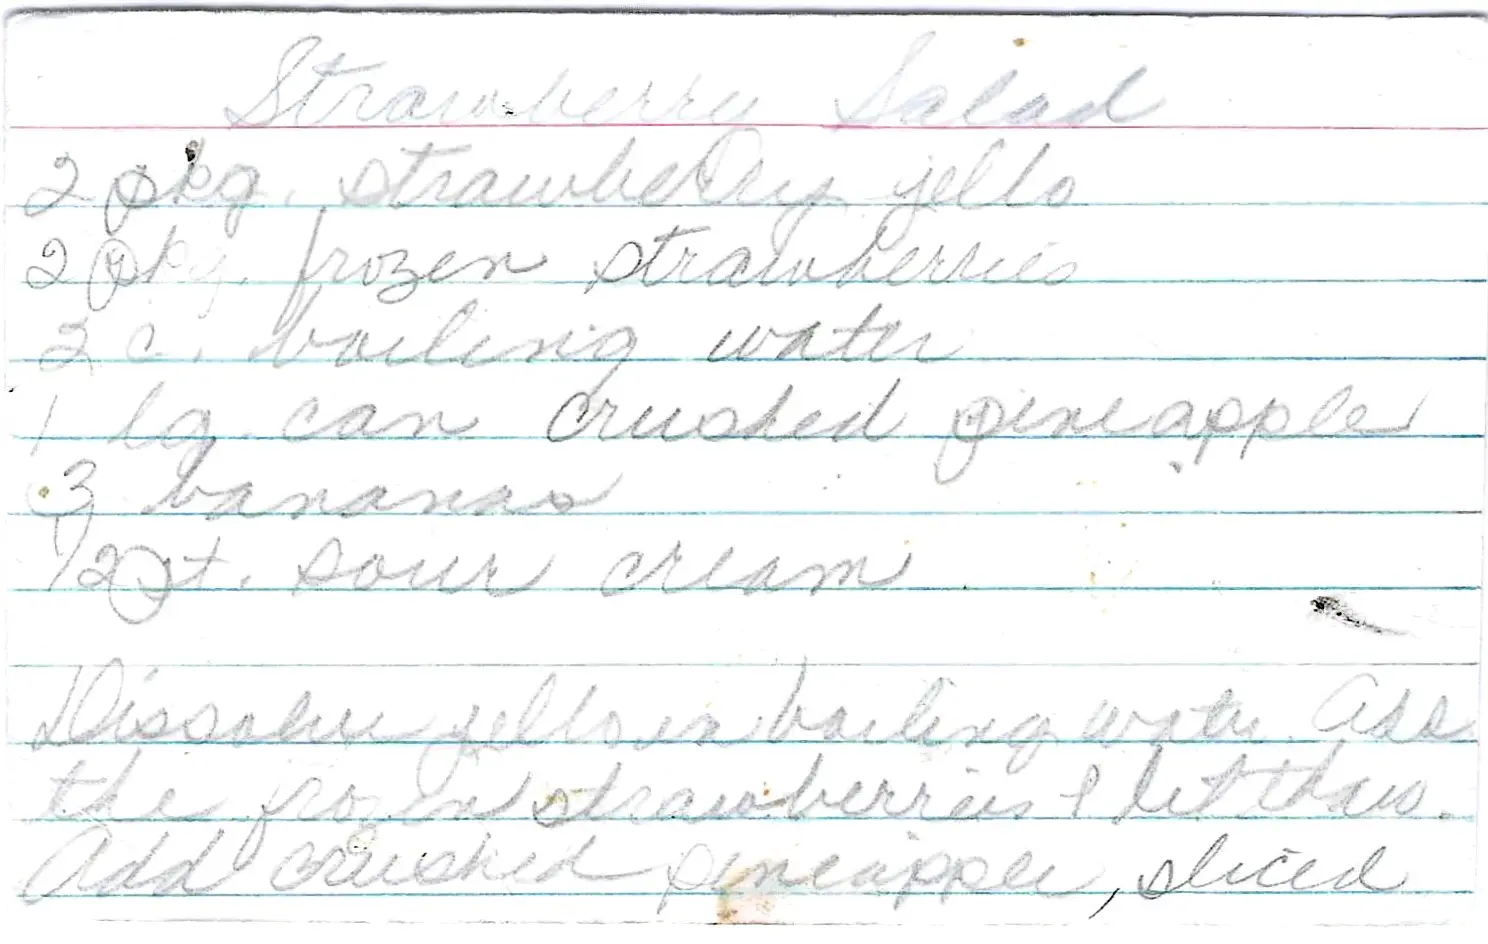 Strawberry Salad
2 pkg. strawberry jello
2 pkg. frozen strawberries
3 c. boiling water
1 lg. can crushed pineapple
3 bananas
1/2 pt. sour cream
Dissolve jello in boiling water. Add
the frozen strawberries & let thaw.
Add crushed pineapple, sliced